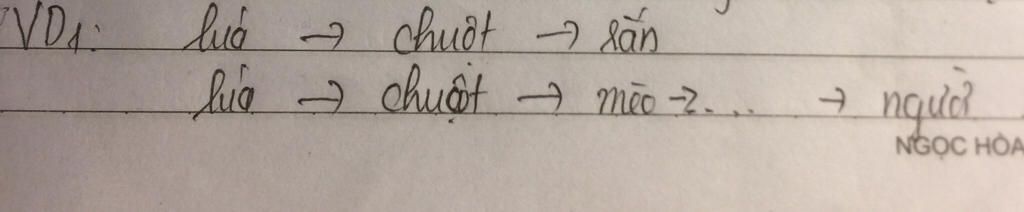 VD1: lúa → chuột → rắn
lúa → chuột → mèo → ... → người
NGỌC HÒA